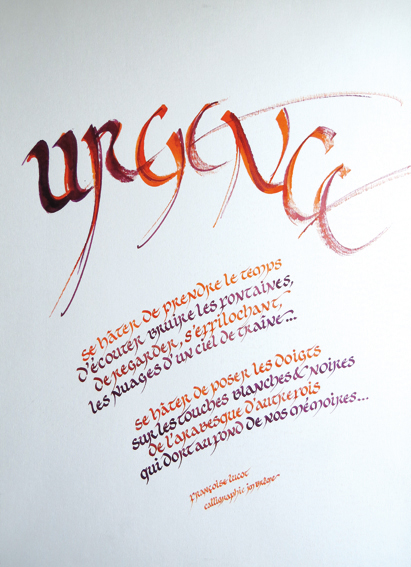 urgence
se hâter de prendre le temps
d'écouter bruire les fontaines,
de regarder, s'effilochant,
les nuages d'un ciel de traîne...
se hâter de poser les doigts
sur les touches blanches & noires
de l'arabesque d'autrefois
qui dort au fond de nos mémoires...
Françoise Lucot
calligraphie